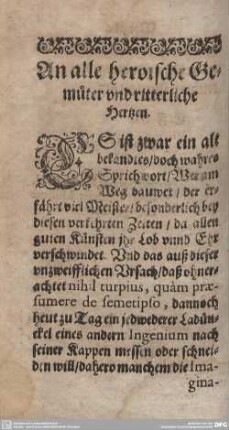 An alle heroische Ge-
müter vnd ritterliche
Hertzen.
ES ist zwar ein alt
bekandtes/doch wahres
Sprichwort/Wer am
Weg bauwet/der er-
fährt viel Meister/besonderlich bey
diesen verkehrten Zeiten/da allen
guten Künsten jhr Lob vnnd Ehr
verschwindet. Vnd das auß dieser
vnzweifflichen Vrsach/daß ohner-
achtet nihil turpius, quàm præ-
sumere de semetipso, dannoch
heut zu Tag ein jedwederer Ladün-
ckel eines andern Ingenium nach
seiner Kappen messen oder schnei-
den will/dahero manchem die Ima-
gina-